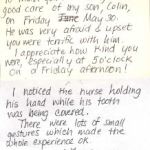 good care of my son, Colin,
on Friday June May 30.
He was very afraid & upset
you were terrific with him
I appreciate how kind you
were, especially at 5 o'clock
on a Friday afternoon!
I noticed the nurse holding
his hand while his tooth
was being covered.
There were lots of small
gestures which made the
whole experience ok.